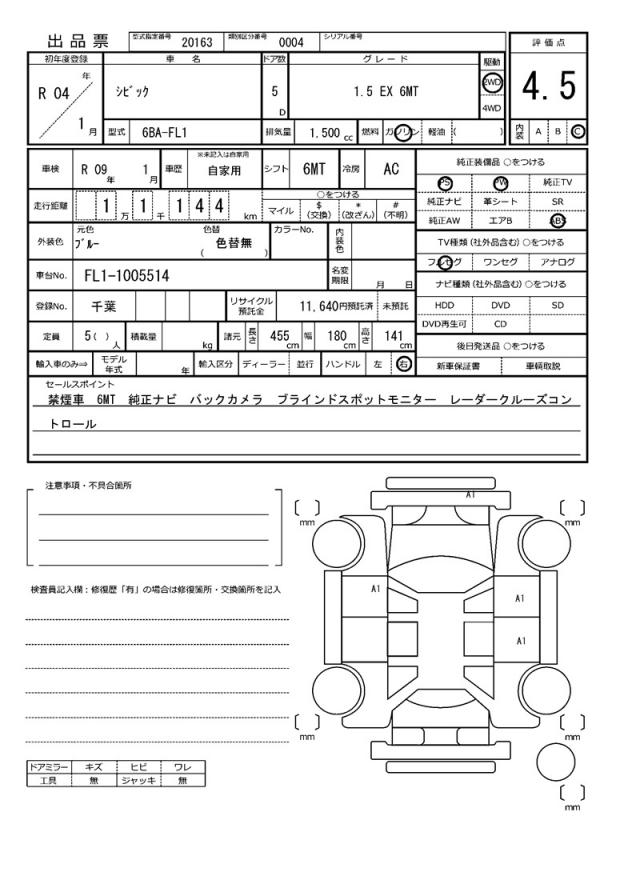 出品票
型式指定番号 20163 類別区分番号 0004 シリアル番号
評価点
4.5
内装 A B C
初年度登録 車名 ドア数 グレード 駆動
R 04 年 1 月
シビック 5 D 1.5 EX 6MT
2WD
4WD
型式 6BA-FL1 排気量 1.500 cc 燃料 ガソリン 軽油 ( )
車検 R 09 年 1 月 車歴 ※未記入は自家用 自家用 シフト 6MT 冷房 AC
走行距離 1 万 1 千 1 4 4 km
○をつける
マイル $(交換) *(改ざん) #(不明)
外装色 元色 ブルー 色替 ( 色替無 ) カラーNo. 内装色
車台No. FL1-1005514 名変期限 月 日
登録No. 千葉 リサイクル預託金 11,640円預託済 未預託
定員 5( ) 人 積載量 kg 諸元 長さ 455 cm 幅 180 cm 高さ 141 cm
輸入車のみ⇒ モデル年式 年 輸入区分 ディーラー 並行 ハンドル 左 右
純正装備品 ○をつける
PS PW 純正TV
純正ナビ 革シート SR
純正AW エアB ABS
TV種類 (社外品含む) ○をつける
フルセグ ワンセグ アナログ
ナビ種類 (社外品含む) ○をつける
HDD DVD SD
DVD再生可 CD
後日発送品 ○をつける
新車保証書 車輌取説
セールスポイント
禁煙車 6MT 純正ナビ バックカメラ ブラインドスポットモニター レーダークルーズコン
トロール
注意事項・不具合箇所
検査員記入欄：修復歴「有」の場合は修復箇所・交換箇所を記入
ドアミラー キズ ヒビ ワレ
工具 無 ジャッキ 無
A1
mm
mm
A1
A1
A1
mm
mm
mm